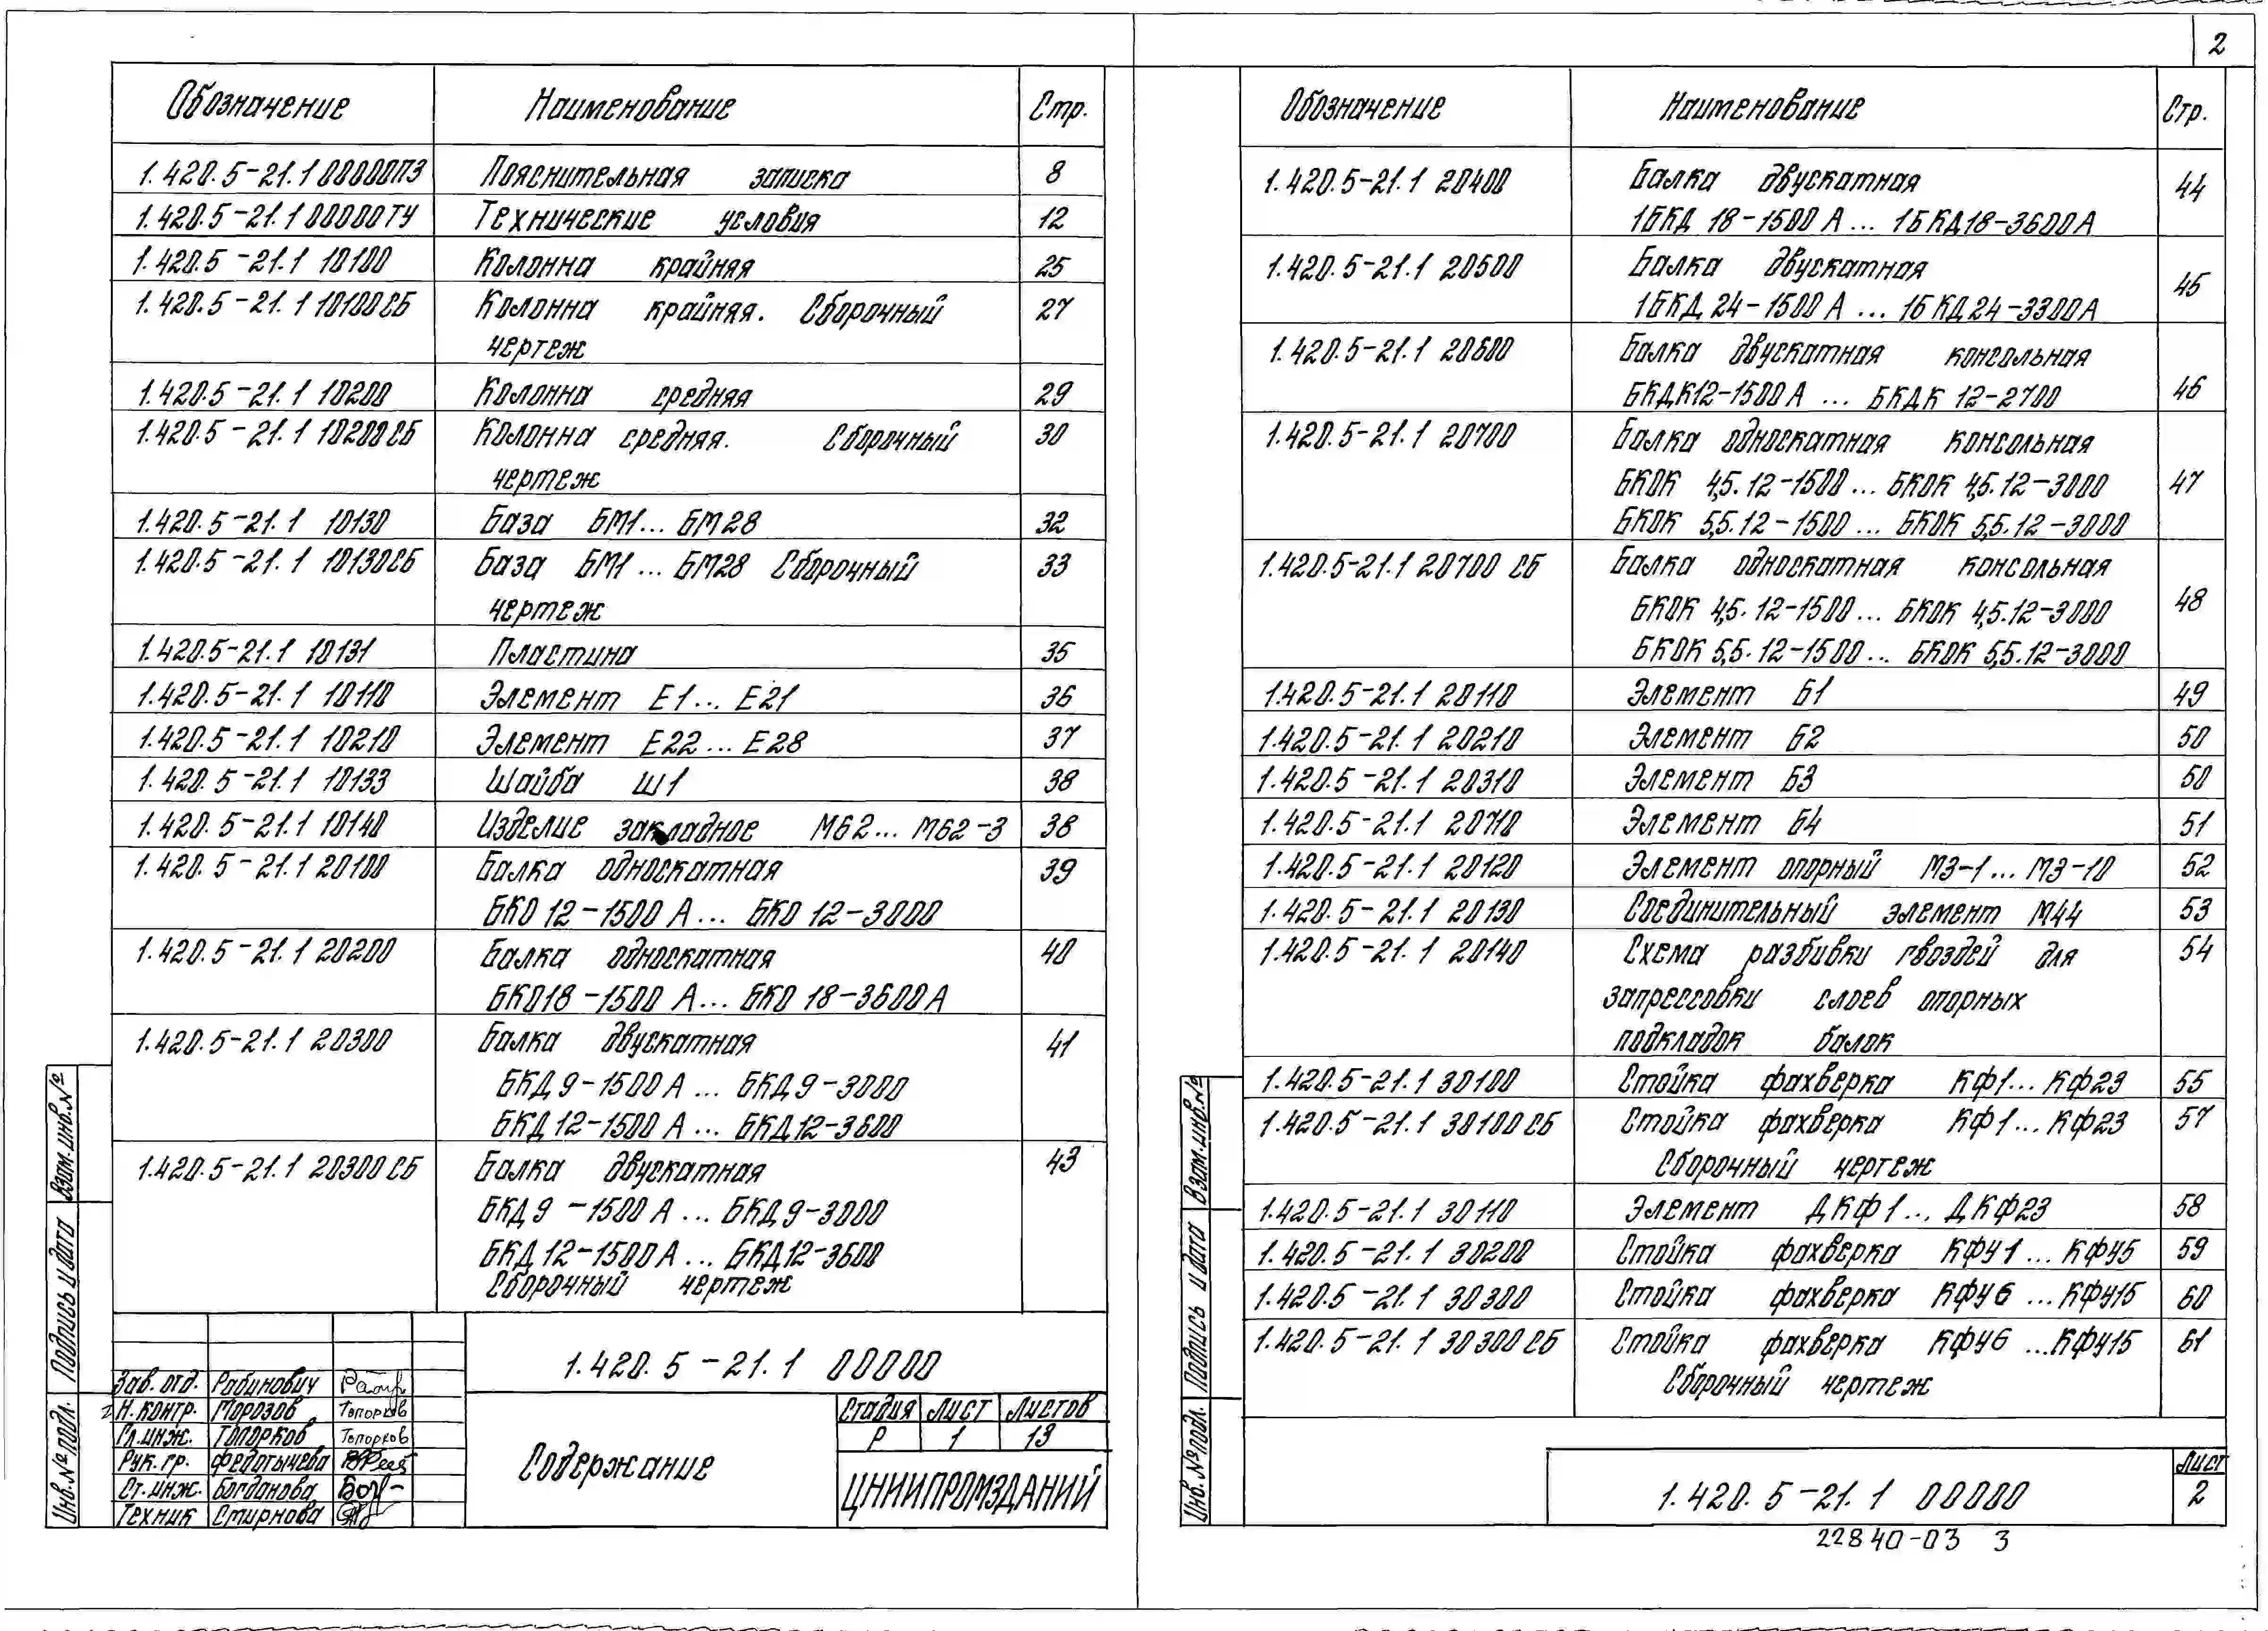 2
Обозначение Наименование Стр.
1.420.5-21.1 00000ПЗ Пояснительная записка 8
1.420.5-21.1 00000ТУ Технические условия 12
1.420.5-21.1 10100 Колонна крайняя 25
1.420.5-21.1 10100СБ Колонна крайняя. Сборочный 27
чертеж
1.420.5-21.1 10200 Колонна средняя 29
1.420.5-21.1 10200СБ Колонна средняя. Сборочный 30
чертеж
1.420.5-21.1 10130 База БМ1... БМ28 32
1.420.5-21.1 10130СБ База БМ1... БМ28 Сборочный 33
чертеж
1.420.5-21.1 10131 Пластина 35
1.420.5-21.1 10110 Элемент Е1... Е21 36
1.420.5-21.1 10210 Элемент Е22... Е28 37
1.420.5-21.1 10133 Шайба Ш1 38
1.420.5-21.1 10140 Изделие закладное М62... М62-3 38
1.420.5-21.1 20100 Балка односкатная 39
БКО 12-1500 А... БКО 12-3000
1.420.5-21.1 20200 Балка односкатная 40
БКО18-1500 А... БКО 18-3600А
1.420.5-21.1 20300 Балка двускатная 41
БКД9-1500А... БКД9-3000
БКД12-1500А... БКД12-3600
1.420.5-21.1 20300СБ Балка двускатная 43
БКД9-1500А... БКД9-3000
БКД12-1500А... БКД12-3600
Сборочный чертеж
1.420.5-21.1 00000
Зав. отд. Рабинович
Н. контр. Морозов Топорков
Гл. инж. Топорков Топорков
Рук. гр. Федотычева
Ст. инж. Богданова
Техник Смирнова
Содержание
Стадия Лист Листов
Р 1 13
ЦНИИПРОМЗДАНИЙ
Инв. № подл. Подпись и дата Взам. инв. №
Обозначение Наименование Стр.
1.420.5-21.1 20400 Балка двускатная 44
1БКД 18-1500 А... 1БКД18-3600А
1.420.5-21.1 20500 Балка двускатная 45
1БКД 24-1500 А... 1БКД24-3300А
1.420.5-21.1 20600 Балка двускатная консольная 46
БКДК12-1500А... БКДК 12-2700
1.420.5-21.1 20700 Балка односкатная консольная 47
БКОК 4,5.12-1500... БКОК 4,5.12-3000
БКОК 5,5.12-1500... БКОК 5,5.12-3000
1.420.5-21.1 20700 СБ Балка односкатная консольная 48
БКОК 4,5.12-1500... БКОК 4,5.12-3000
БКОК 5,5.12-1500... БКОК 5,5.12-3000
1.420.5-21.1 20110 Элемент Б1 49
1.420.5-21.1 20210 Элемент Б2 50
1.420.5-21.1 20310 Элемент Б3 50
1.420.5-21.1 20710 Элемент Б4 51
1.420.5-21.1 20120 Элемент опорный М3-1... М3-10 52
1.420.5-21.1 20130 Соединительный элемент М44 53
1.420.5-21.1 20140 Схема разбивки гвоздей для 54
запрессовки слоев опорных
подкладок балок
1.420.5-21.1 30100 Стойка фахверка КФ1... КФ23 55
1.420.5-21.1 30100СБ Стойка фахверка КФ1... КФ23 57
Сборочный чертеж
1.420.5-21.1 30110 Элемент ДКФ1... ДКФ23 58
1.420.5-21.1 30200 Стойка фахверка КФУ1... КФУ5 59
1.420.5-21.1 30300 Стойка фахверка КФУ6... КФУ15 60
1.420.5-21.1 30300СБ Стойка фахверка КФУ6...КФУ15 61
Сборочный чертеж
1.420.5-21.1 00000
Лист
2
Инв. № подл. Подпись и дата Взам. инв. №
22840-03 3